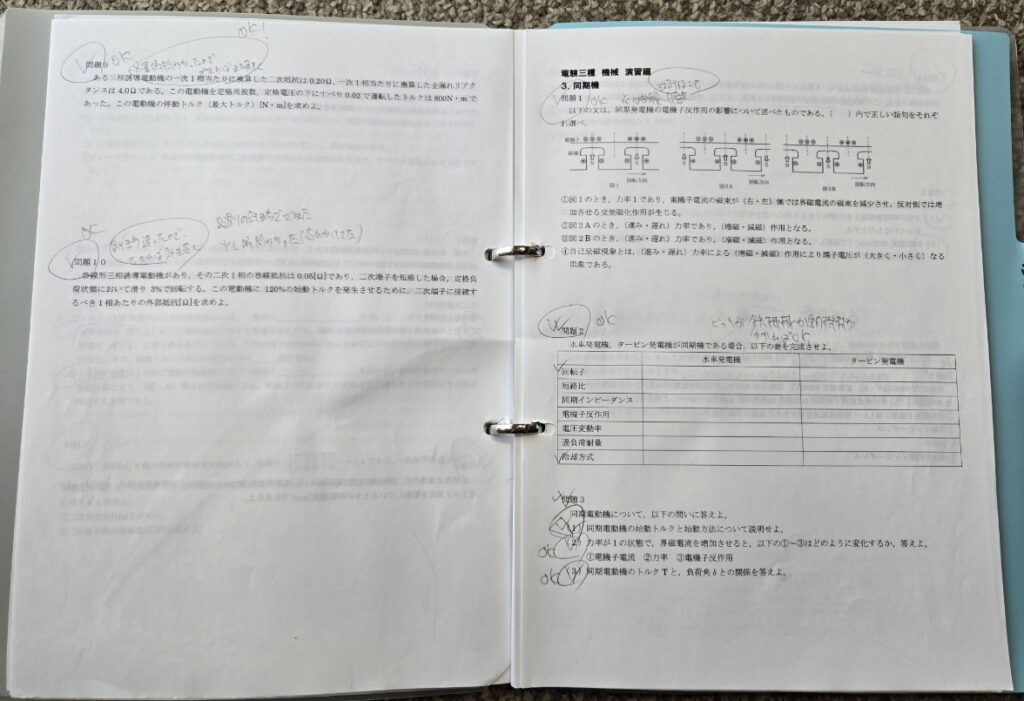 OK!
OK
問題9
ある三相誘導電動機の一次1相当たりに換算した二次抵抗は0.20Ω、一次1相当たりに換算した全漏れリアク
タンスは4.0Ωである。この電動機を定格周波数、定格電圧の下にすべり0.02で運転したトルクは800N・mで
あった。この電動機の停動トルク（最大トルク）[N・m]を求めよ。
OK
問題10
巻線形三相誘導電動機があり、その二次1相の巻線抵抗は0.05[Ω]であり、二次端子を短絡した場合、定格負
荷状態において滑り3%で回転する。この電動機に120%の始動トルクを発生させるために、二次端子に接続す
るべき1相あたりの外部抵抗[Ω]を求めよ。
電験三種 機械 演習編
3. 同期機
問題1
OK
以下の文は、同期発電機の電機子反作用の影響について述べたものである。（ ）内で正しい語句をそれぞ
れ選べ。
電機子
界磁
N
S
N
S
S
N
回転方向
回転方向
回転方向
図1
図2A
図2B
①図1のとき、力率1であり、電機子電流の磁束が（右・左）側では界磁電流の磁束を減少させ、反対側では増
加させる交差磁化作用が生じる。
②図2Aのとき、（進み・遅れ）力率であり、（増磁・減磁）作用となる。
③図2Bのとき、（進み・遅れ）力率であり、（増磁・減磁）作用となる。
④自己励磁現象とは、（進み・遅れ）力率による（増磁・減磁）作用により端子電圧が（大きく・小さく）なる
現象である。
問題2
OK
どっちが鉄機械か銅機械か
水車発電機、タービン発電機が同期機である場合、以下の表を完成させよ。
水車発電機 タービン発電機
回転子
短絡比
同期インピーダンス
電機子反作用
電圧変動率
過負荷耐量
冷却方式
問題3
同期電動機について、以下の問いに答えよ。
（1）同期電動機の始動トルクと始動方法について説明せよ。
（2）力率が1の状態で、界磁電流を増加させると、以下の①～③はどのように変化するか、答えよ。
OK
①電機子電流 ②力率 ③電機子反作用
OK
（3）同期電動機のトルクTと、負荷角δとの関係を答えよ。